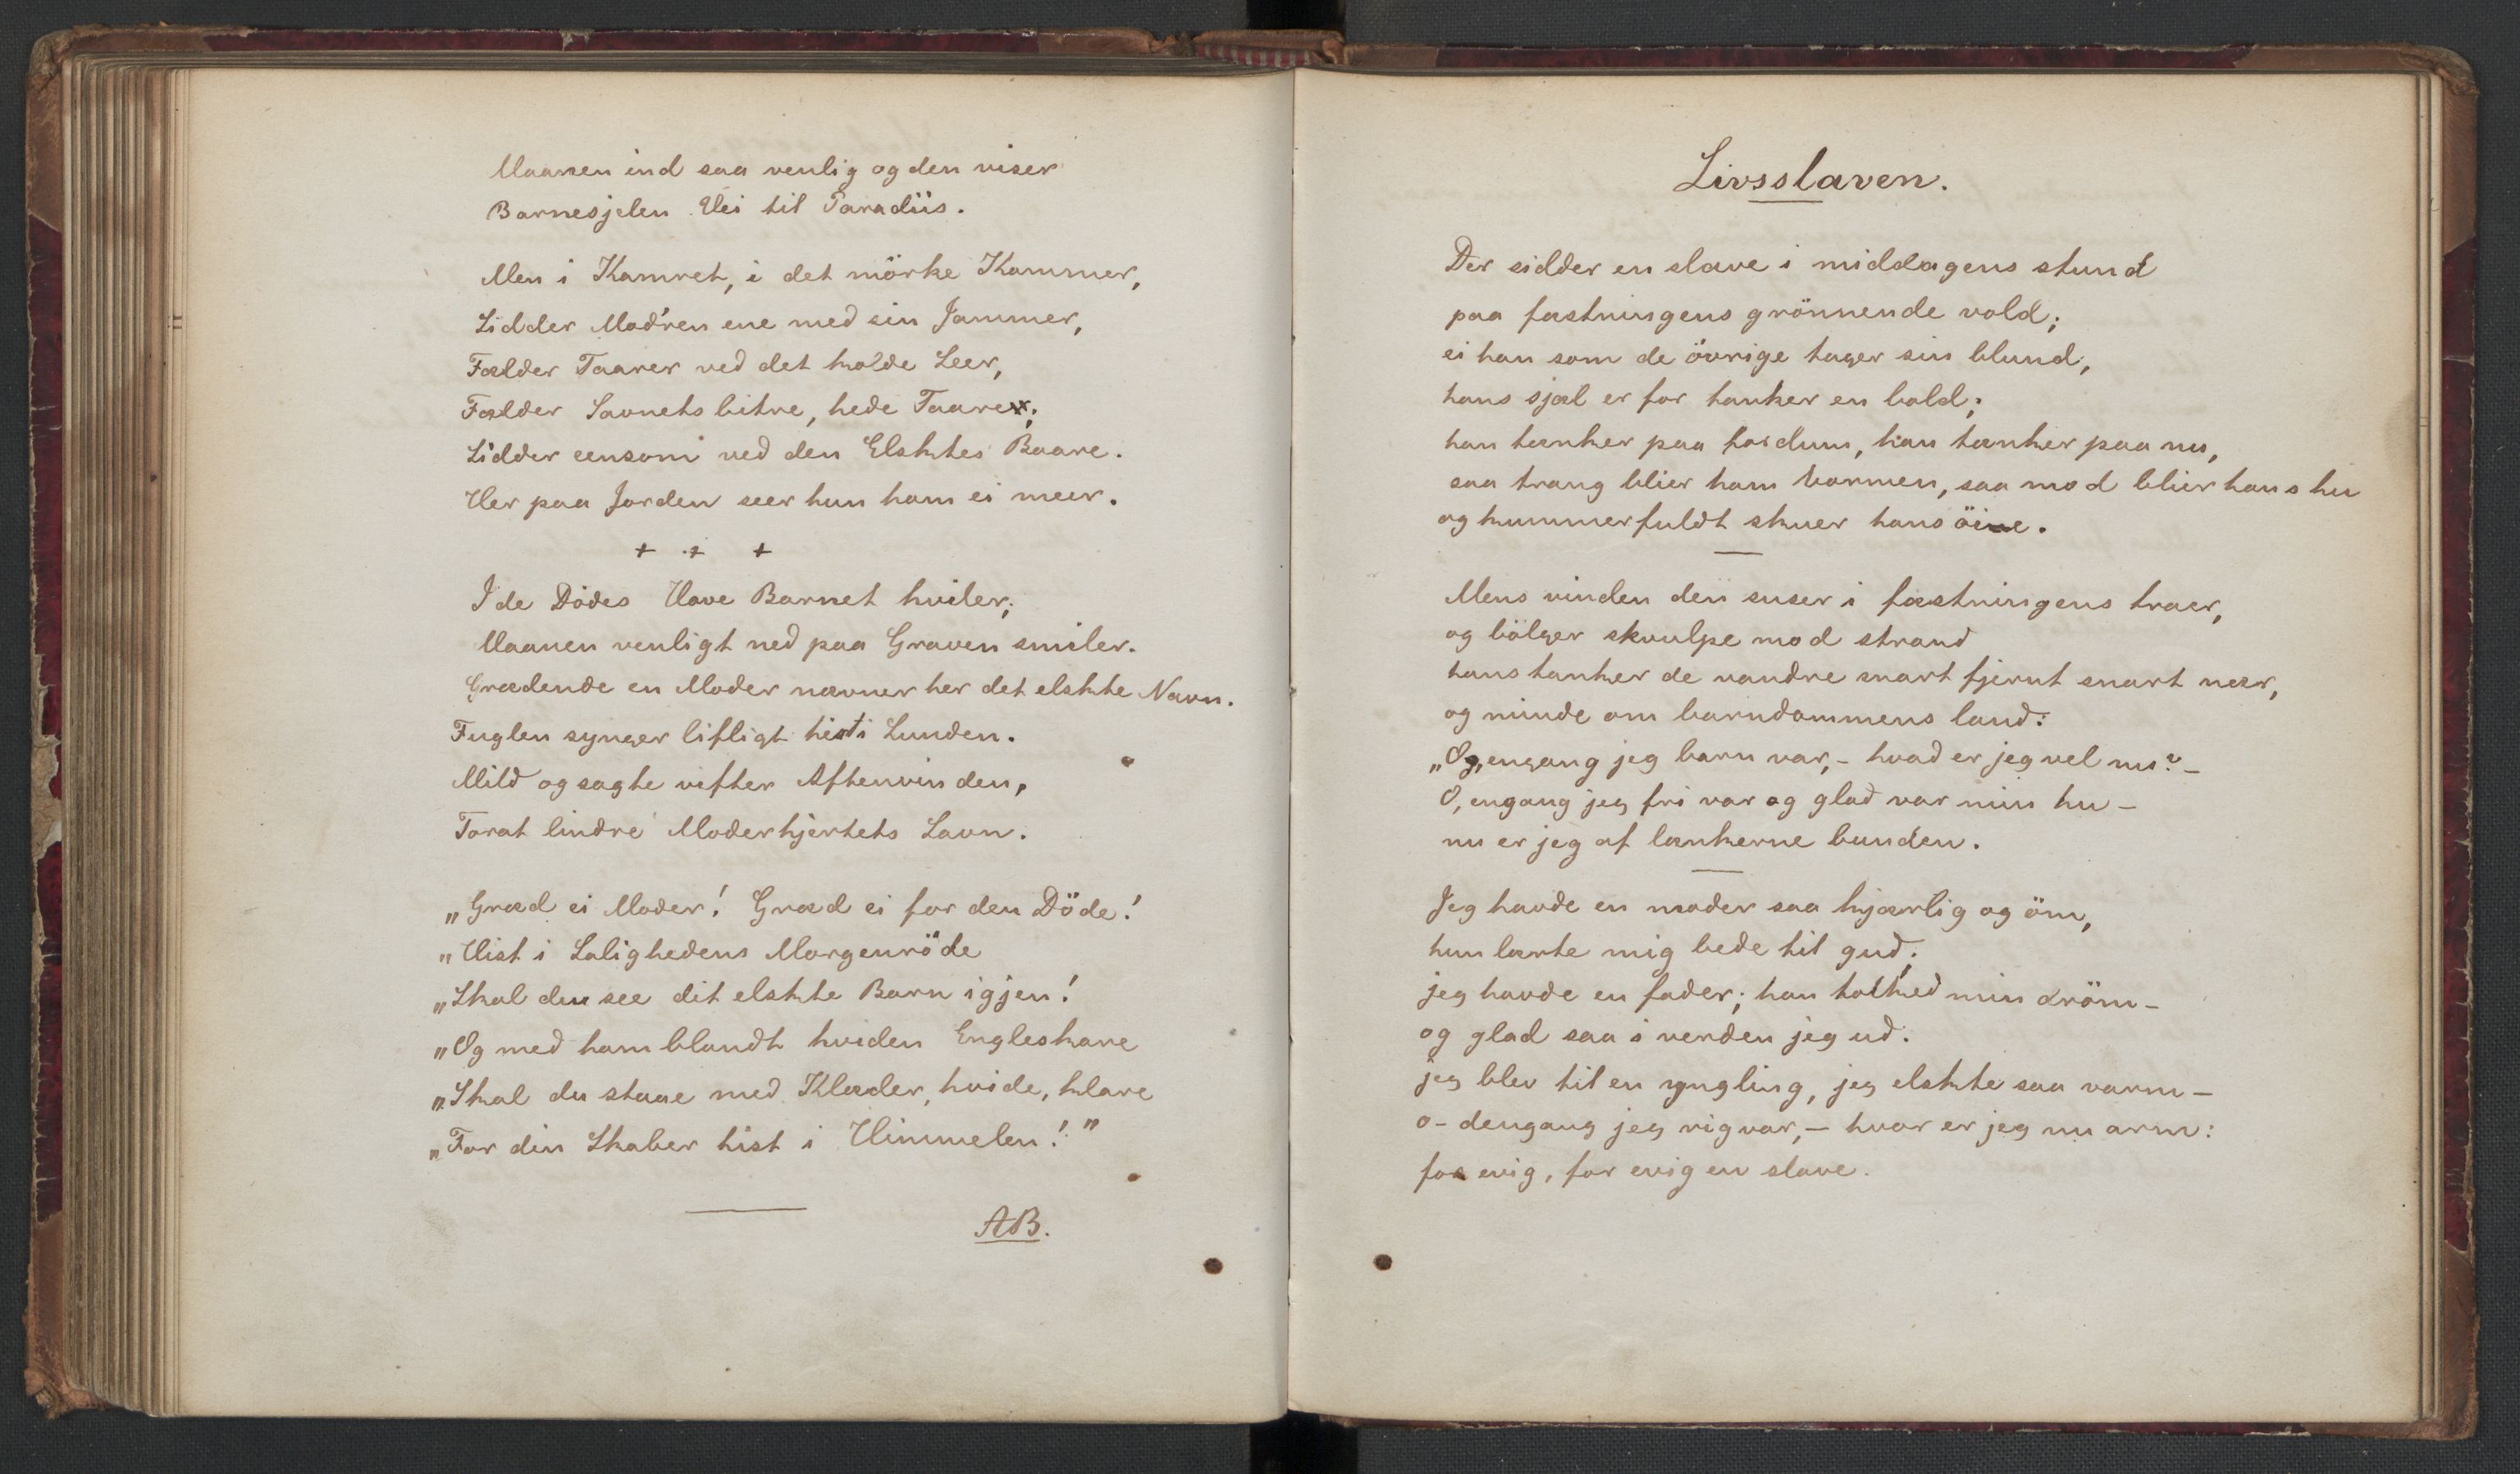 Maanen ind saa venlig og den viser
Barnesjelen Vei til Paradiis.
Men i Kamret, i det mörke Kammer,
Sidder Mod'ren ene med sin Jammer,
Fælder Taarer ved det kolde Leer,
Fælder Savnets bitre, hede Taarer;
Sidder eensom ved den Elsktes Baare.
Her paa Jorden seer hun ham ei meer.
+ + +
I de Dödes Have Barnet hviler;
Maanen venligt ned paa Graven smiler.
Grædende en Moder nævner her det elskte Navn.
Fuglen synger lifligt hist i Lunden.
Mild og sagte vifter Aftenvinden,
For at lindre Moderhjertets Savn.
„Græd ei Moder! Græd ei for den Döde!
„Hist i Salighedens Morgenröde
„Skal du see dit elskte Barn igjen!
„Og med ham blandt hviden Engleskare
„Skal du staae med Klæder, hvide, klare
„For din Skaber hist i Himmelen!"
AB.
Livsslaven.
Der sidder en slave i middagens stund
paa fæstningens grönnende vold;
ei han som de övrige tager sin blund,
hans sjæl er for tanker en bold;
han tænker paa fordum, han tænker paa nu,
saa trang blier ham barmen, saa mod blier hans hu
og kummerfuldt skuer hans öine.
Mens vinden den suser i fæstningens træer,
og bölger skvulpe mod strand
hans tanker de vandre snart fjernt snart nær,
og minde om barndommens land:
„O, engang jeg barn var, – hvad er jeg vel nu? –
O, engang jeg fri var og glad var min hu –
nu er jeg af lænkerne bunden.
Jeg havde en moder saa kjærlig og öm,
hun lærte mig bede til gud;
jeg havde en fader; han min dröm –
og glad saa i verden jeg ud.
jeg blev til en yngling, jeg elskte saa varm –
o – dengang jeg rig var, – hvor er jeg nu arm:
for evig, for evig en slave.